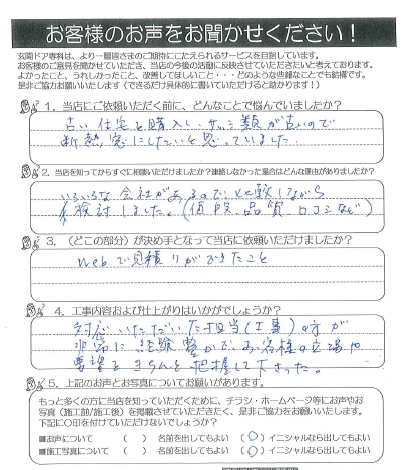 お客様のお声をお聞かせください！
玄関ドア専科は、より一層皆さまのご期待にこたえられるサービスを目指しています。
お客様のご意見を聞かせていただき、当店の今後の活動に反映させていただきたいと考えております。
よかったこと、うれしかったこと、改善してほしいこと・・・どのような些細なことでも結構です。
是非ご協力お願いいたします（できるだけ具体的に書いていただけると助かります！）
1．当店にご依頼いただく前に、どんなことで悩んでいましたか？
古い住宅を購入し、サッシ類が古いので
断熱窓にしたいと思っていました。
2．当店を知ってからすぐに相談いただけましたか？連絡しなかった場合はどんな理由がありましたか？
いろいろな会社があるので比較しながら
検討しました。（値段、品質、口コミなど）
3．（どこの部分）が決め手となって当店に依頼いただけましたか？
webで見積りができたこと
4．工事内容および仕上がりはいかがでしょうか？
対応いただいた担当（工事）の方が
非常に経験豊かでお客様の立場や
要望をきちんと把握して下さった。
5．上記のお声とお写真についてお願いがあります。
もっと多くの方に当店を知っていただくために、チラシ・ホームページ等にお声やお
写真（施工前/施工後）を掲載させていただきたく、是非ご協力をお願いいたします。
下記に○印を付けていただけないでしょうか？
■お声について （ ） 名前を出してもよい （○）イニシャルなら出してもよい
■施工写真について （ ） 名前を出してもよい （○）イニシャルなら出してもよい